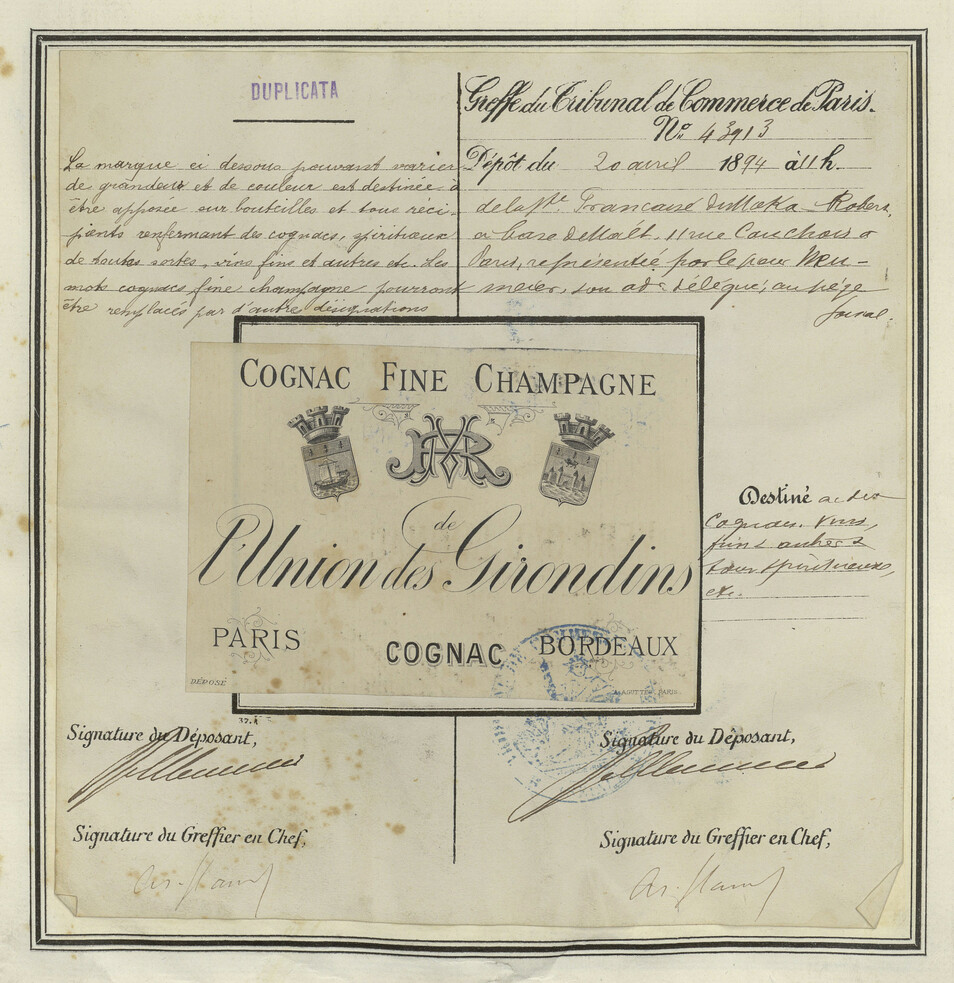 DUPLICATA
La marque ci dessous pouvant varier
de grandeur et de couleur est destinée à
être apposée sur bouteilles et tous réci-
pients renfermant des cognacs, spiritueux
de toutes sortes, vins fins et autres etc. Les
mots cognacs fine champagne pourront
être remplacés par d'autre désignations
Greffe du Tribunal de Commerce de Paris.
No. 43913
Dépôt du 20 avril 1894 à 11 h.
de la Sté Francaise du Moka-Robers,
a base de Malt, 11 rue Cauchois a
Paris, représentée par le
son ad. délégué, au siège
social.
COGNAC FINE CHAMPAGNE
de
l'Union des Girondins
PARIS
COGNAC
BORDEAUX
DÉPOSÉ
PARIS
Destiné a des
Cognacs. Vins,
fins & autres &
tous spiritueux,
etc.
Signature du Déposant,
Signature du Déposant,
Signature du Greffier en Chef,
Signature du Greffier en Chef,